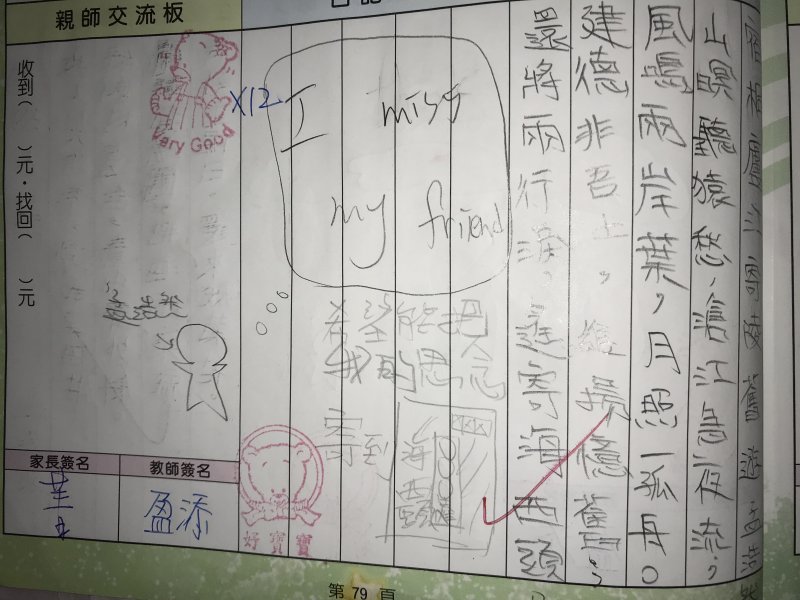 宿桐廬江寄陵舊遊 孟浩然
山暝聽猿愁，滄江急夜流，
風鳴兩岸葉，月照一孤舟。
建德非吾土，維揚憶舊
還將兩行淚，遙寄海西頭
I miss
my friend
希望能把
我的思念
寄到
海
西頭
XXX
X12
Very Good
孟浩然
好寶寶
親師交流板
收到（ ）元．找回（ ）元
家長簽名
教師簽名
盈添
第 79 頁